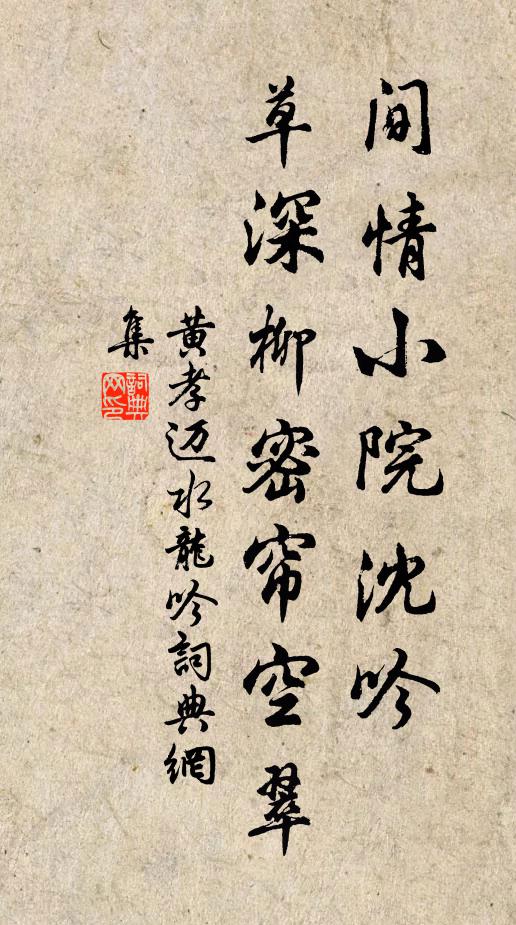 间情小院沈吟
草深柳密帘空翠
黄孝迈水龍吟詞典網
集
詞典
网印